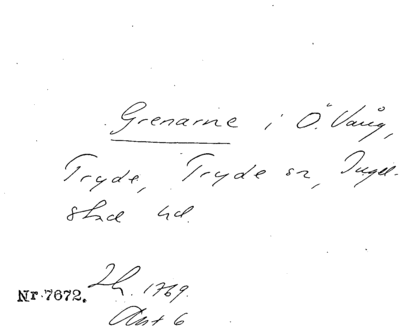 Grenarne i Ö. Vång,
Tryde, Tryde sn, Ingel-
stad hd.
Lh. 1769.
Nr 7672.
Akt 6